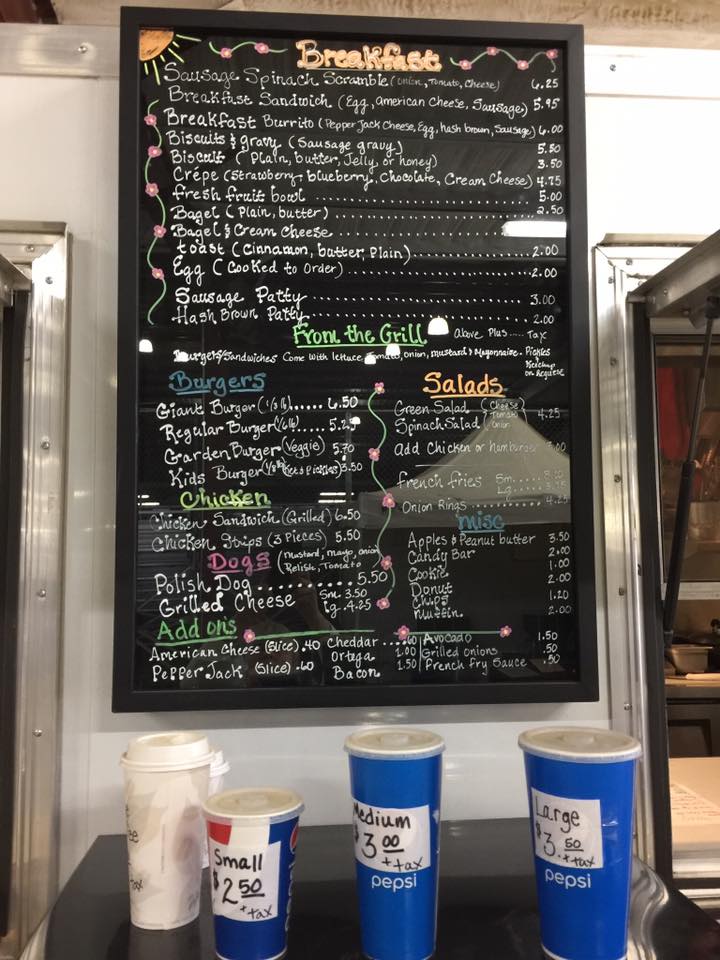 Breakfast
Sausage Spinach Scramble (onion, Tomato, Cheese) 6.25
Breakfast Sandwich (Egg, american Cheese, Sausage) 5.95
Breakfast Burrito (Pepper Jack Cheese, Egg, hash brown, Sausage) 6.00
Biscuits & gravy (Sausage gravy) 5.50
Biscuit (Plain, butter, Jelly, or honey) 3.50
Crêpe (Strawberry, blueberry, Chocolate, Cream Cheese) 4.75
fresh fruit bowl 5.00
Bagel (Plain, butter) 2.50
Bagel & Cream Cheese
toast (Cinnamon, butter, Plain) 2.00
Egg (Cooked to Order) 2.00
Sausage Patty 3.00
Hash Brown Patty 2.00
From the Grill Above Plus ..... Tax
Burgers/Sandwiches Come with lettuce, Tomato, onion, mustard & Mayonnaise. Pickles
Ketchup
on Request
Burgers
Giant Burger (1/3 lb) 6.50
Regular Burger (1/6 lb) 5.25
Garden Burger (Veggie) 5.70
Kids Burger (Ket & Pickles) 3.50
Chicken
Chicken Sandwich (Grilled) 6.50
Chicken Strips (3 Pieces) 5.50
Dogs (mustard, mayo, onion, Relish, Tomato
Polish Dog 5.50
Grilled Cheese Sm. 3.50
Lg. 4.25
Salads
Green Salad (Cheese
Tomato 4.25
Spinach Salad Onion
Add Chicken or hamburger
french fries Sm.
Lg.
Onion Rings 4.25
misc
Apples & Peanut butter 3.50
Candy Bar 2.00
Cookie 1.00
Donut 2.00
Chips 1.20
Muffin 2.00
Add on's
American Cheese (Slice) .40
Pepper Jack (Slice) .60
Cheddar .60
Ortega 1.00
Bacon 1.50
Avocado 1.50
Grilled onions .50
French fry Sauce .50
Small
$2.50
+tax
pepsi
Medium
$3.00
+tax
pepsi
Large
$3.50
+tax
pepsi